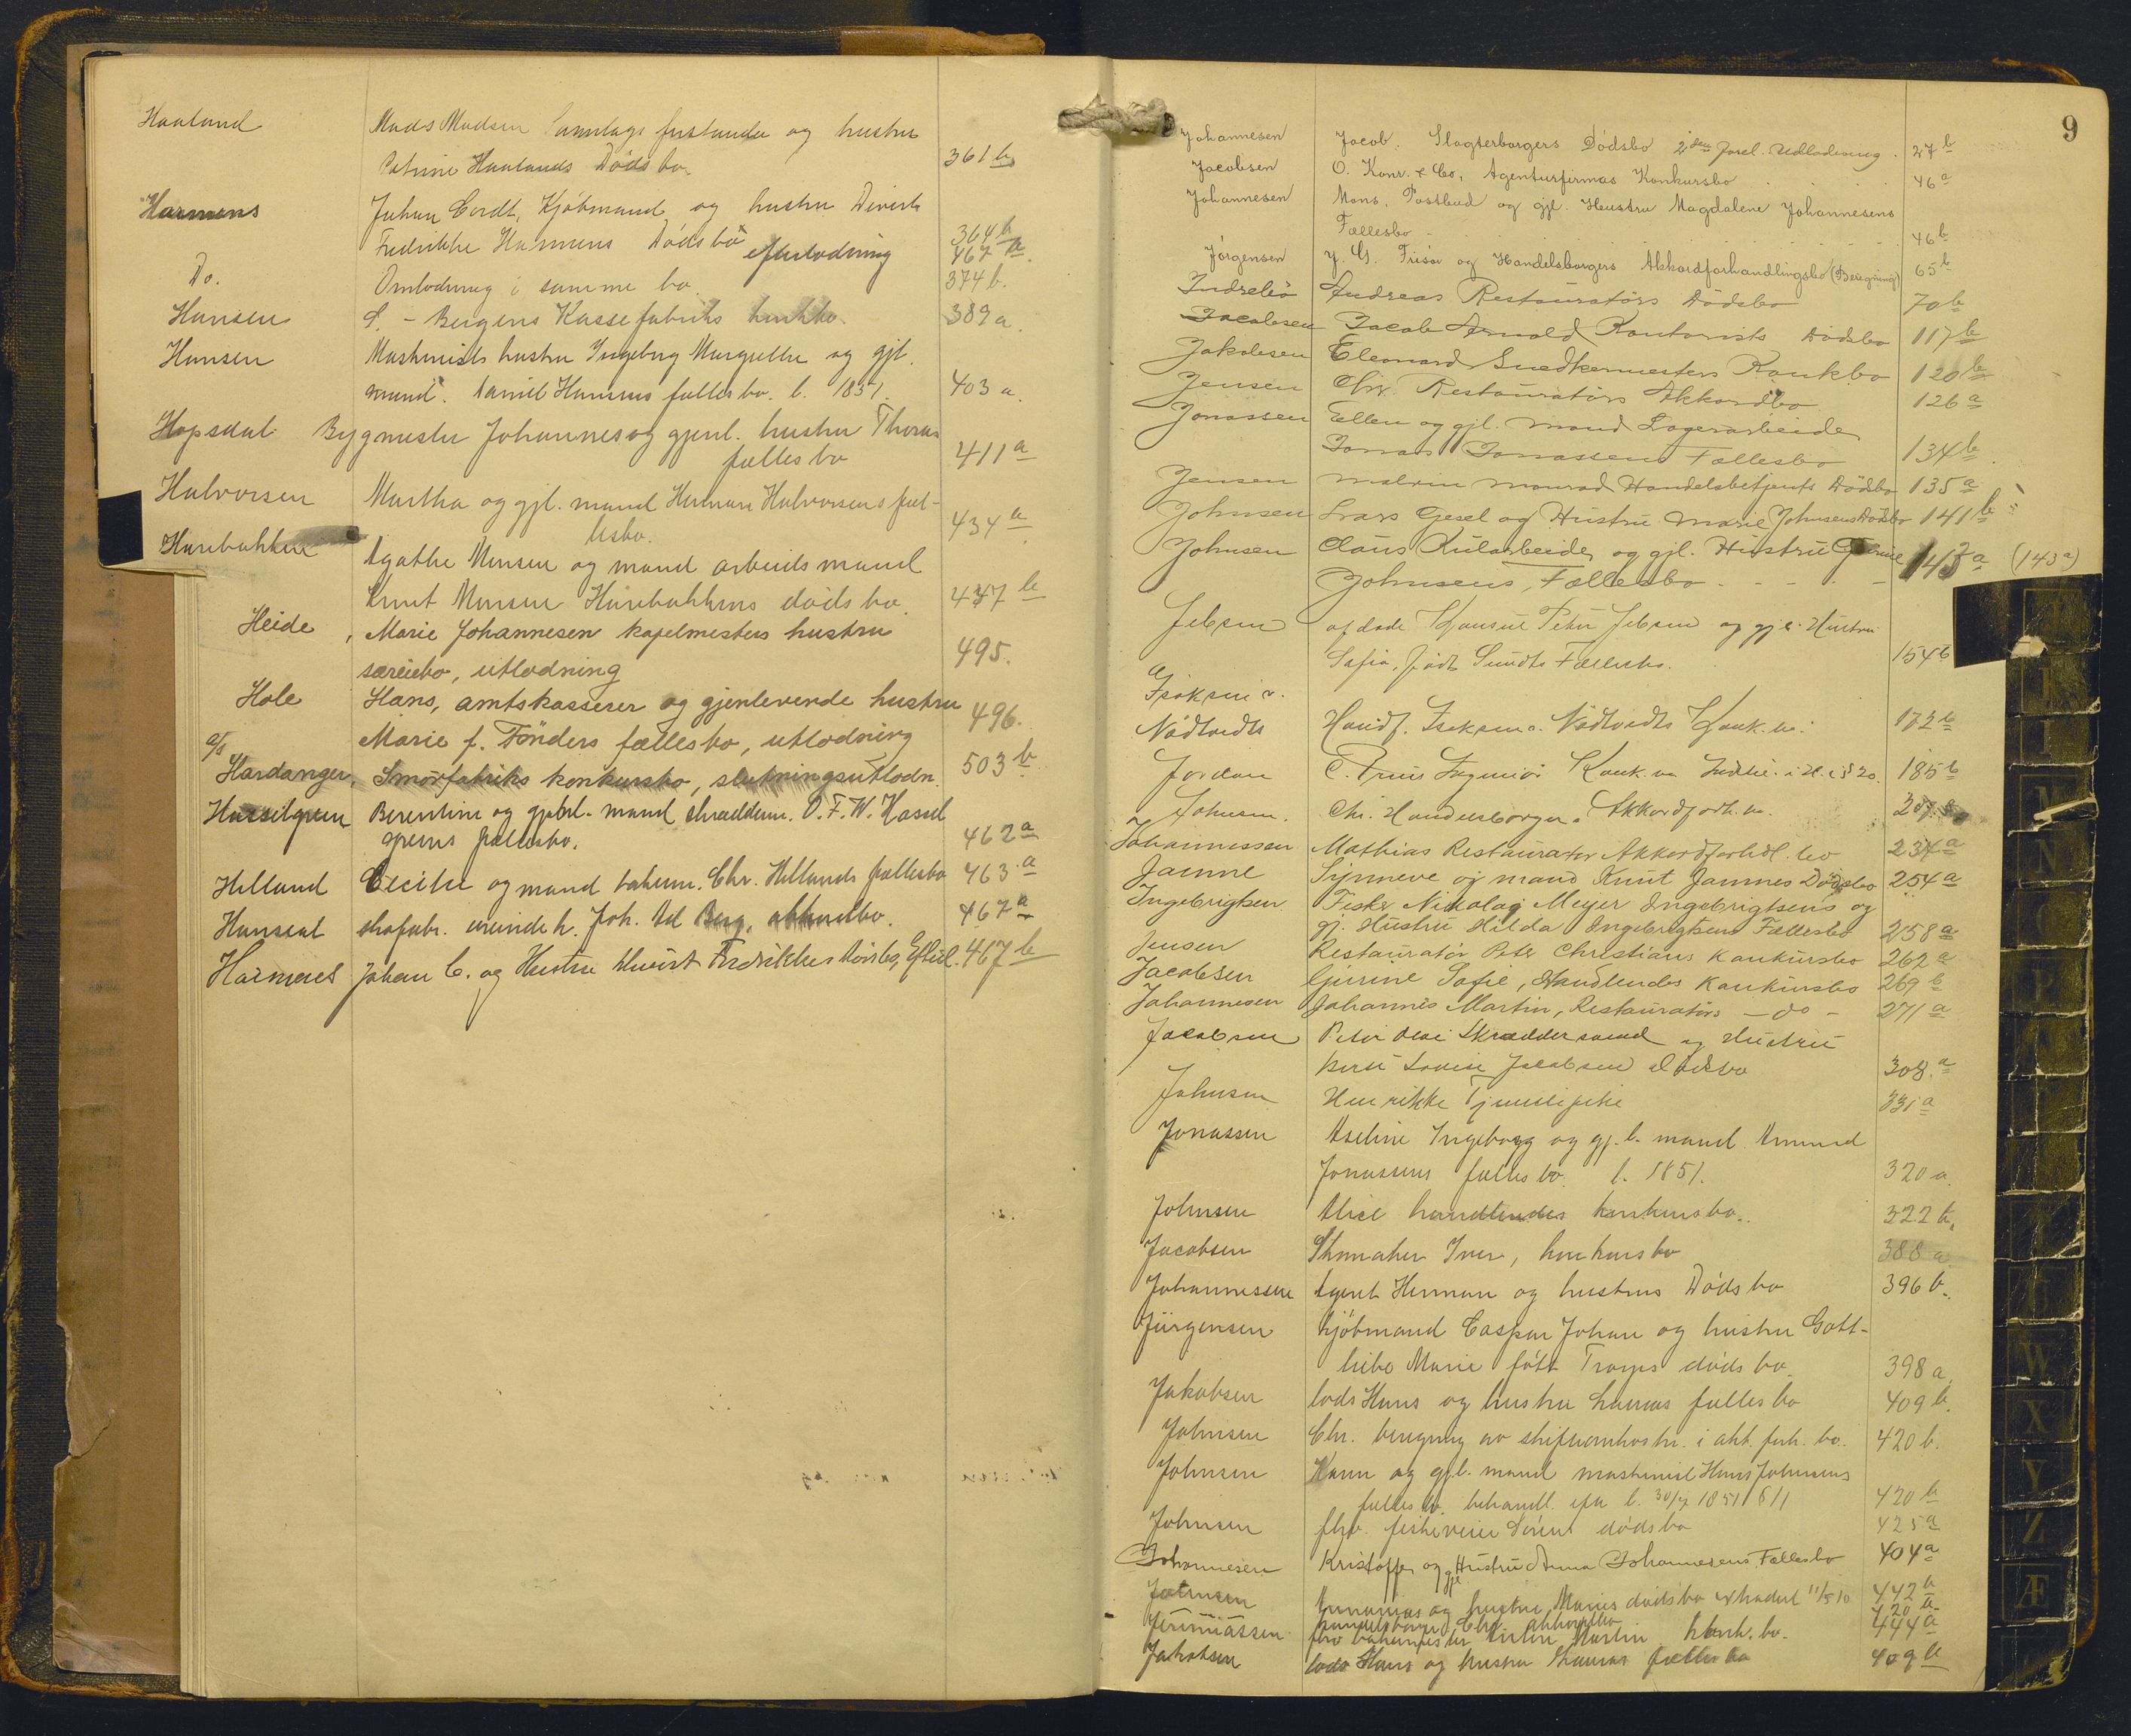 Haaland Mads Madsen og hustru
Petrine Haalands Dödsbo 361 b
Harmens Johan Cordt, Kjöbmand og hustru
Fredrikke Harmens Dödsbo efterlodning 364 b 467 b
Do. Omlodning i samme bo 374 b.
Hansen S. - Bergens Kassefabriks konkbo 389 a.
Hansen Maskinists hustru Ingeborg Margrethe og gjl.
mand. Daniel Hansens fællesbo. l. 1851. 403 a.
Hopsdal Bygmester Johannes og gjenl. hustru Thoras
fællesbo 411 a
Halvorsen Martha og gjl. mand Herman Halvorsens fæl-
lesbo. 434 a
Harebakken Agathe Monsen og mand arbeidsmand
Knut Monsen Harebakkens dödsbo. 447 b
Heide, Marie Johannesen kapelmesters hustru
særeiebo, utlodning 495.
Hole Hans, amtskasserer og gjenlevende hustru
Marie f. Fönders fællesbo, utlodning 496.
A/S Hardanger, Smörfabriks konkursbo, slutningsutlodn. 503 b
Hasselgreen Berentine og gjebl. mand skræddem. O. F. W. Hassel
greens fællesbo. 462 a
Helland Cecilie og mand bakerm. Chr. Hellands fællesbo 463 a
Hanseat skofabr. ved Joh. Ad Berg, akkordbo. 467 a
Harmens Johan C. og Hustru Fredrikkes Dödsbo, Eftlod. 467 b
9
Johannesen Jacob, Slagterborgers Dödsbo 2den forel. Udlodning. 27 b
Jacobsen O. Konr. & Co, Agenturfirmas Konkursbo 46 a
Johannesen Mons, Postbud og gjl. Hustru Magdalene Johannesens
Fællesbo 46 b
Jörgensen J. G. Frisör og Handelsborgers Akkordforhandlingsbo (Beregning) 65 b
Indrebö Andreas Restauratörs Dödsbo 70 b
Jacobsen Jacob Arnold Kontorists Dödsbo 117 b
Jakobsen Eleonard Snedkermesters Konkbo 120 b
Jensen Chr. Restauratörs Akkordbo 126 a
Jonassen Ellen og gjl. Mand Lagerarbeider
Jonas Jonassens Fællesbo 134 b
Jensen Malvin Monrad Handelsbetjents Dödsbo 135 a
Johnsen Lars Gesel og Hustru Marie Johnsens Dödsbo 141 b
Johnsen Claus Kularbeider og gjl. Hustru
Johnsens, Fællesbo 143 a (143 a)
Jebsen afdöde Konsul Peter Jebsen og gjl. Hustru
Sofie, født Sundts Fællesbo. 154 b
Isaksen &
Nödtvedts Handf. Isaksen & Nødtvedts Konk. bo. 172 b
Jordan C. Ingeniör Konk. bo 185 b
Johnsen. Chr. Handelsborger. Akkordforh. bo.
Johannessen Mathias Restauratör Akkordforhdl. bo 234 a
Jamne Synneve og mand Knut Jamnes Dödsbo 254 a
Ingebrigtsen Fisker Nikolai Meyer Ingebrigtsens og
gj. Hustru Hilda Ingebrigtsens Fællesbo 258 a
Jensen Restauratör Peter Christians Konkursbo 262 a
Jacobsen Gjurine Sofie, Handlendes Konkursbo 269 b
Johannesen Johannes Martin, Restauratörs - do - 271 a
Jacobsen Peter Skræddersvend og Hustru
Lovise Jacobsens Dödsbo 308 a
Johnsen Henrikke Tjenestepike 331 a
Jonassen Aseline Ingeborg og gj. l. mand Amund
Jonassens fællesbo l. 1851. 320 a.
Johnsen Alice handlendes konkursbo. 322 b.
Jacobsen Skomaker Iver, konkursbo 388 a
Johannessen Agent Herman og hustrus Dödsbo 396 b.
Jürgensen Kjöbmand Caspar Johan og hustru Gott-
liebe Marie født Troyes dödsbo 398 a.
Jakobsen lods Hans og hustru Lauras fællesbo 409 b.
Johnsen Chr. beregning av skifteomkostn. i akk. forh. bo. 420 b.
Johnsen Karen og gjl. mand maskinist Hans Johnsens
fællesbo. behandl. efter l. 30/7 1851 § 11 420 b
Johnsen fhv. dödsbo 425 a
Johannesen Kristoffer og gjl Hustru Anna Johannesens Fællesbo 404 a
Johnsen Ananias og hustru Maries dødsbo 11/5 10 442 b
Handelsborger Chr. akkordbo 420 b
Jeremiassen fhv. Martin konk. bo. 444 a
Jakobsen lods Hans og hustru Lauras fællesbo 409 b
M
N
O
P
R
T
W
X
Y
Z
Æ